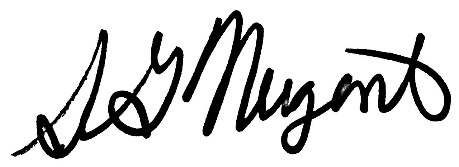 S G Nugent